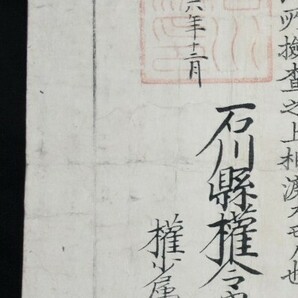 所検査之上相渡スモノ也
六年十二月
石川縣權令
權少属